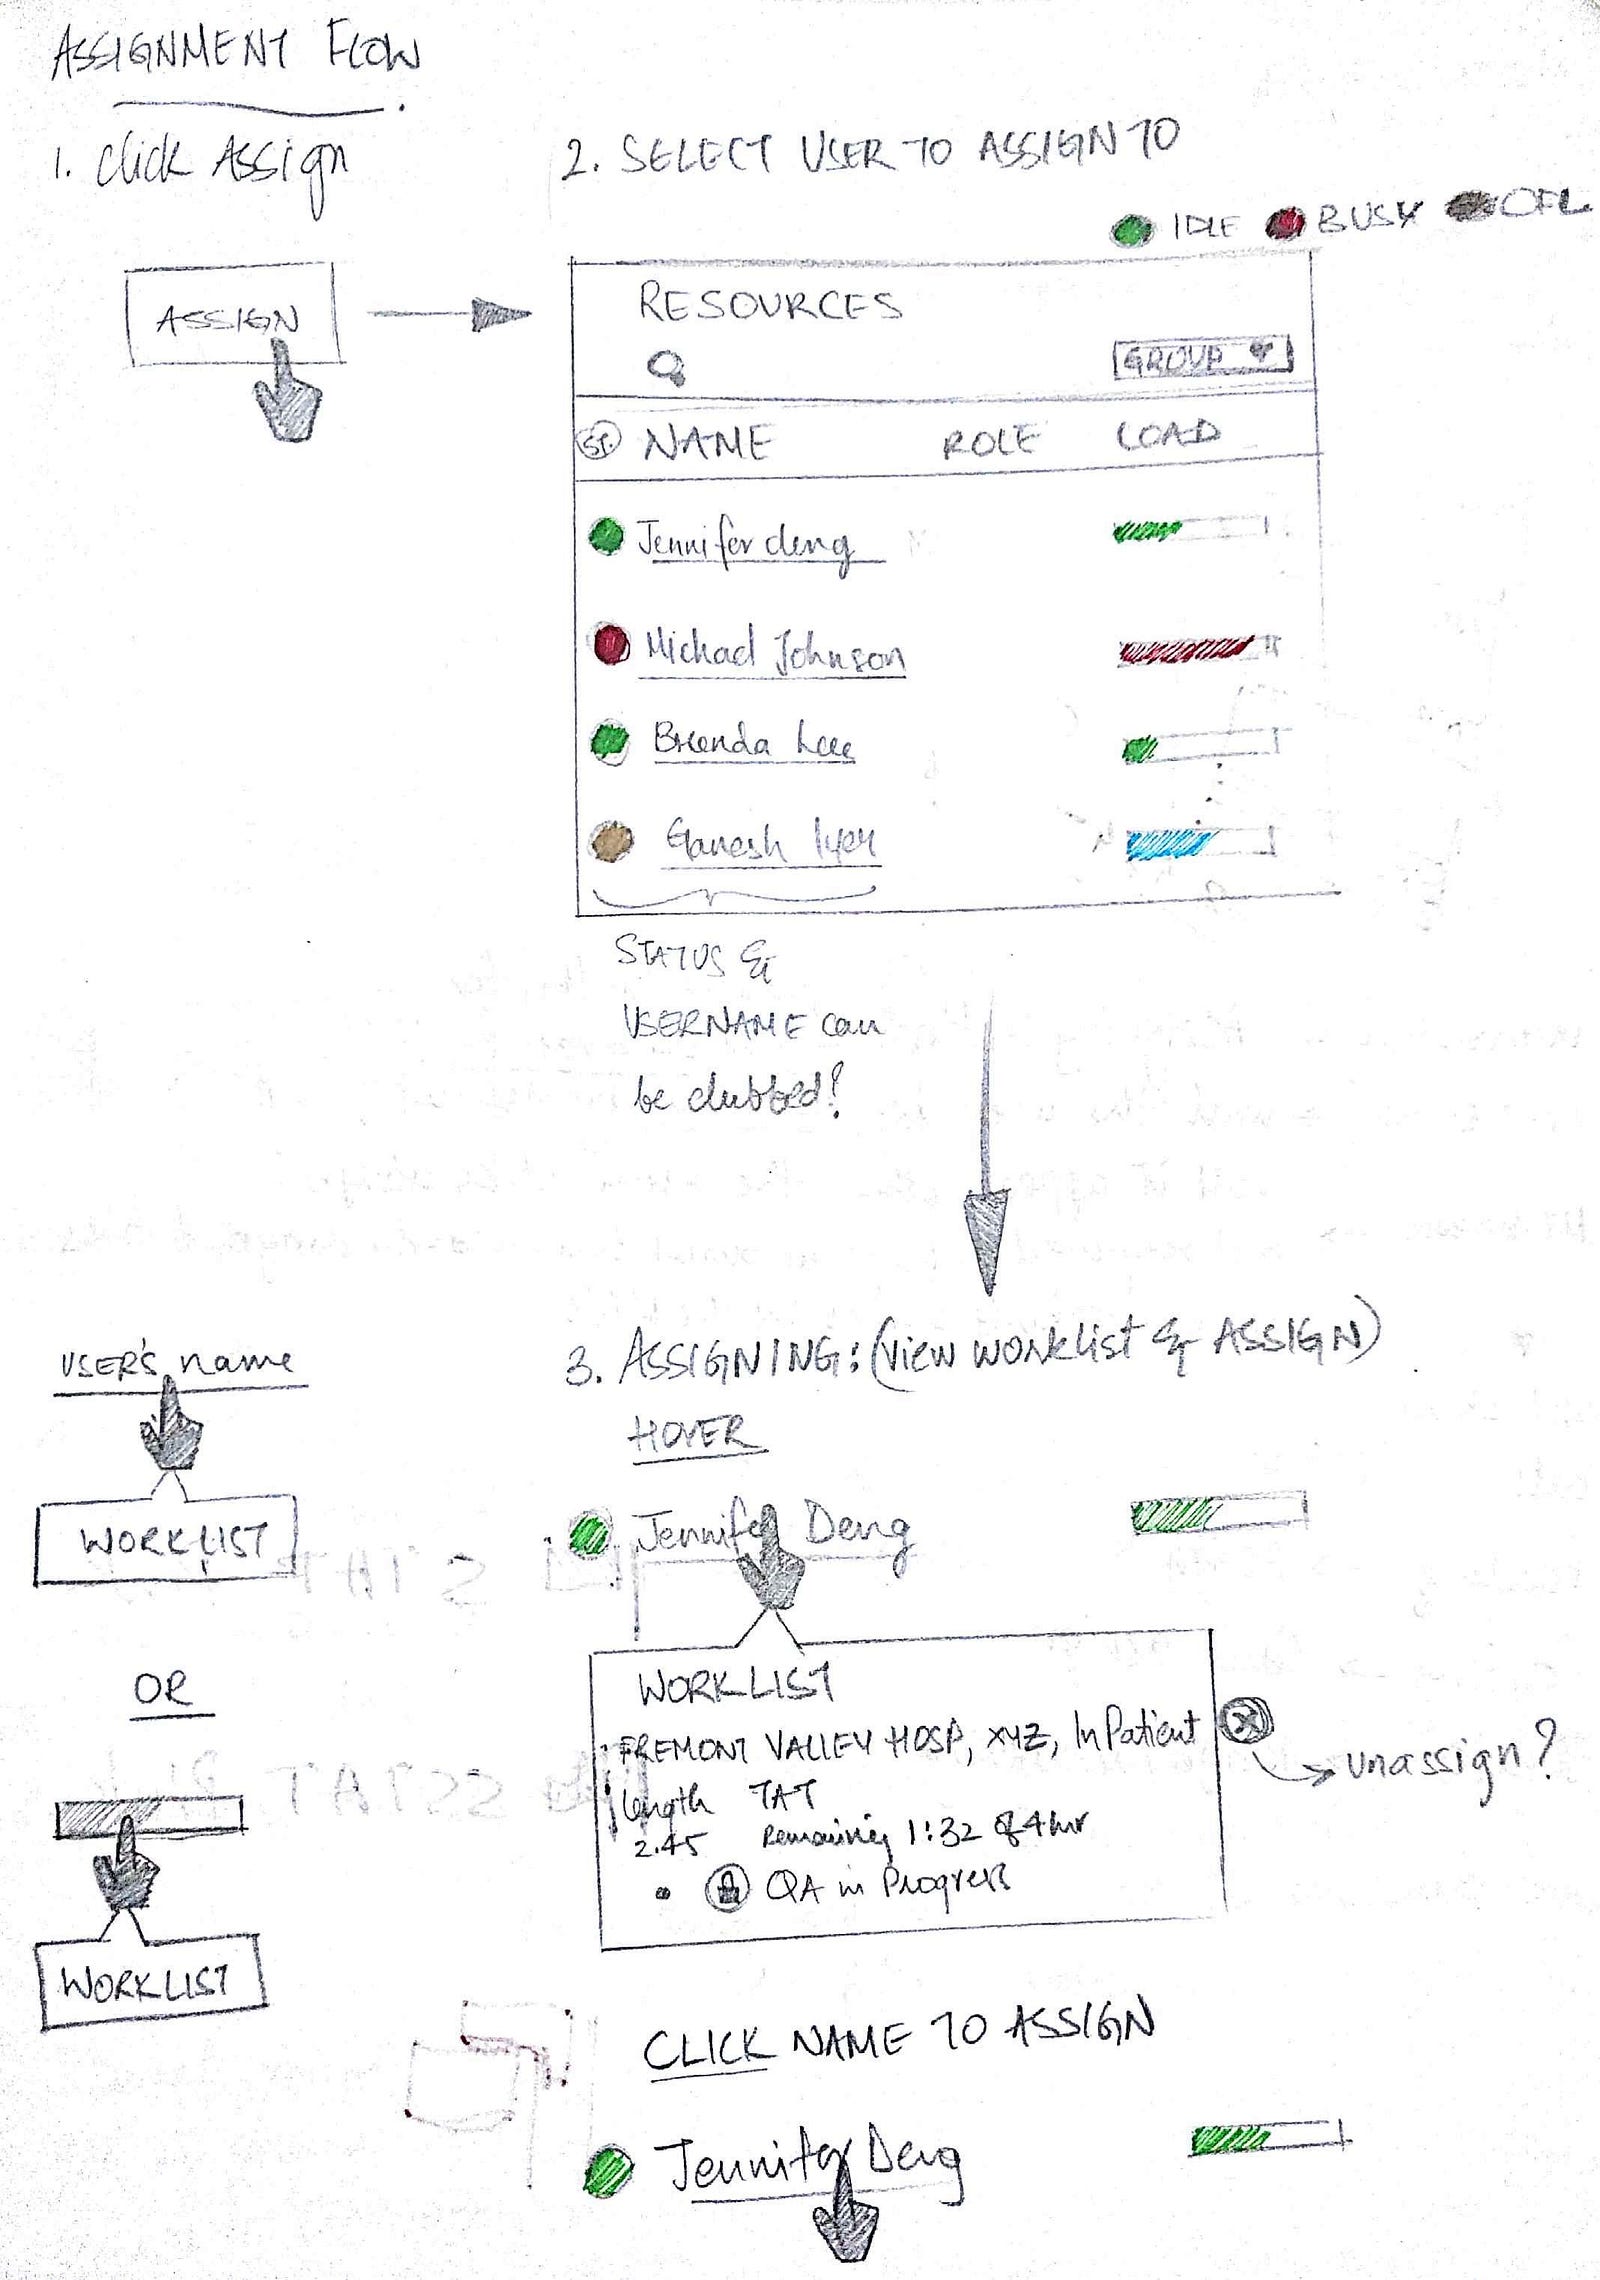 ASSIGNMENT FLOW
1. Click Assign
2. SELECT USER TO ASSIGN TO
IDLE BUSY OFL
ASSIGN
RESOURCES
GROUP
ST. NAME ROLE LOAD
Jennifer deng
Michael Johnson
Brenda Lee
Ganesh Iyer
STATUS &
USERNAME can
be clubbed?
3. ASSIGNING: (View worklist & ASSIGN)
USER'S name
HOVER
Jennifer Deng
WORKLIST
OR
WORKLIST
FREMONT VALLEY HOSP, XYZ, InPatient
unassign?
length TAT
2.45 Remaining 1:32 of 4hr
QA in Progress
WORKLIST
CLICK NAME TO ASSIGN
Jennifer Deng